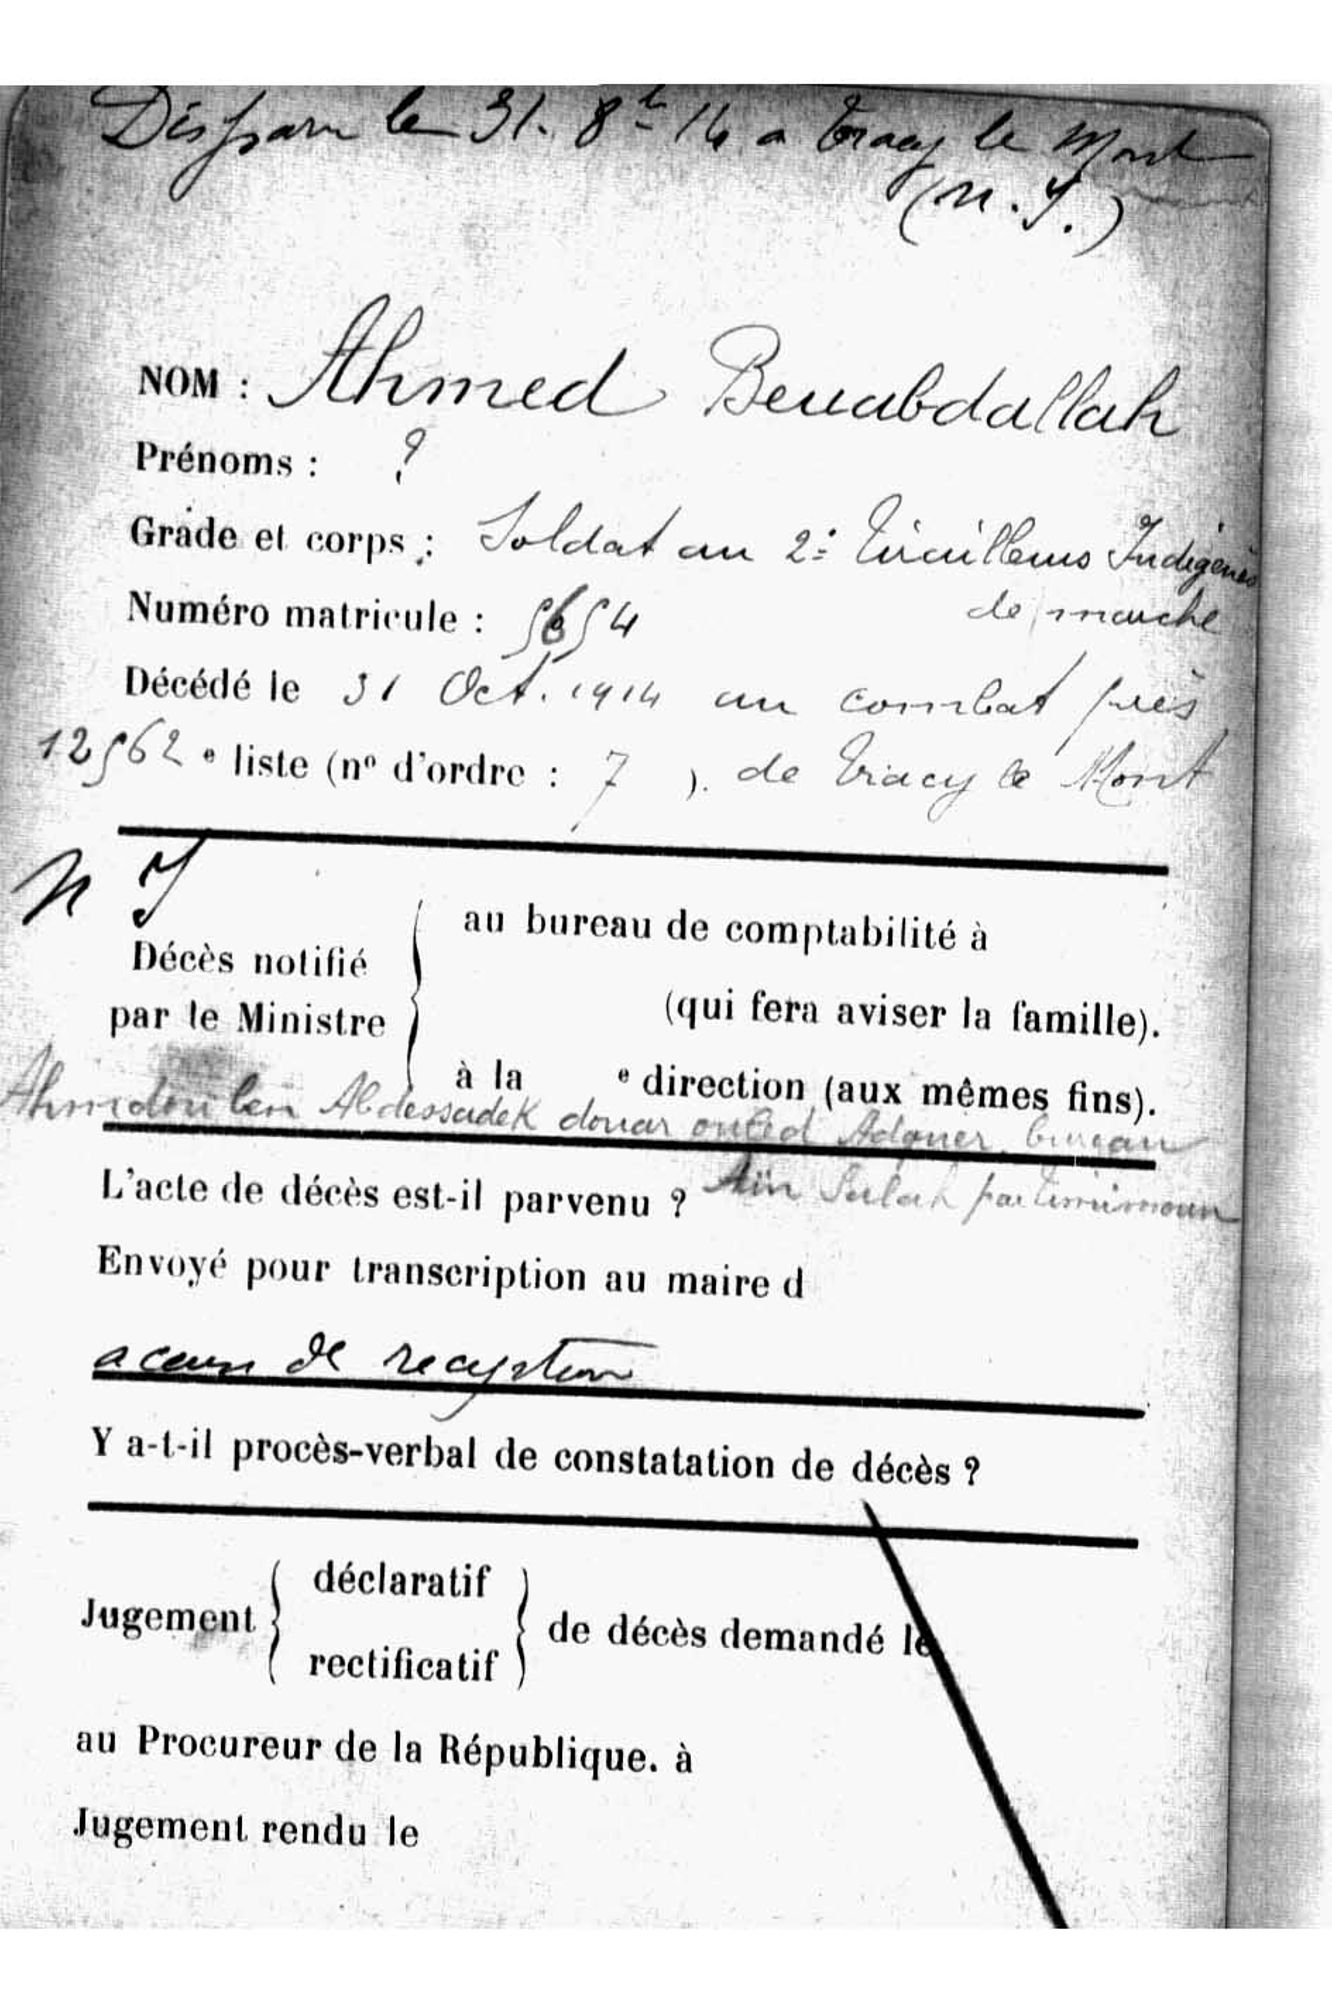 Disparu le 31. 8bre 14 a Tracy le Mont
(N. J.)
NOM : Ahmed Benabdallah
Prénoms : ?
Grade et corps : Soldat au 2e Tirailleurs Indigènes
de marche
Numéro matricule : 5654
Décédé le 31 Oct. 1914 au combat près
12562 e liste (nº d'ordre : 7 ). de Tracy le Mont
N J
Décès notifié par le Ministre
au bureau de comptabilité à
(qui fera aviser la famille).
à la e direction (aux mêmes fins).
Ahmedou ben Abdessadek douar ouled Adguer bureau
Aïn Salah par Timimoun
L'acte de décès est-il parvenu ?
Envoyé pour transcription au maire d
accusé de reception
Y a-t-il procès-verbal de constatation de décès ?
Jugement déclaratif rectificatif de décès demandé le
au Procureur de la République. à
Jugement rendu le